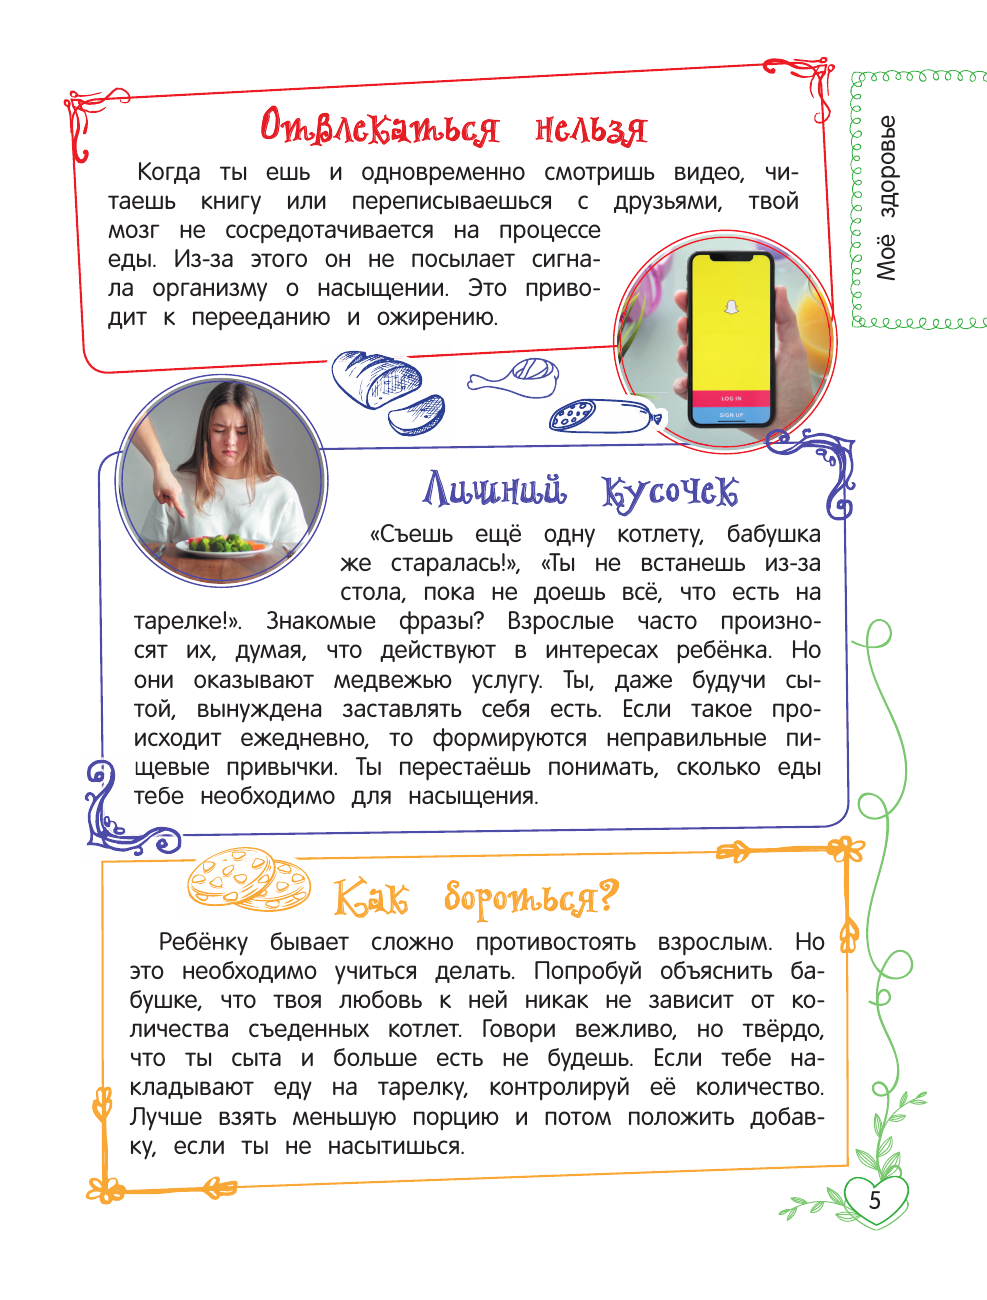 Моё здоровье
Отвлекаться нельзя
Когда ты ешь и одновременно смотришь видео, чи-
таешь книгу или переписываешься с друзьями, твой
мозг не сосредотачивается на процессе
еды. Из-за этого он не посылает сигна-
ла организму о насыщении. Это приво-
дит к перееданию и ожирению.
LOG IN
SIGN UP
Лишний кусочек
«Съешь ещё одну котлету, бабушка
же старалась!», «Ты не встанешь из-за
стола, пока не доешь всё, что есть на
тарелке!». Знакомые фразы? Взрослые часто произно-
сят их, думая, что действуют в интересах ребёнка. Но
они оказывают медвежью услугу. Ты, даже будучи сы-
той, вынуждена заставлять себя есть. Если такое про-
исходит ежедневно, то формируются неправильные пи-
щевые привычки. Ты перестаёшь понимать, сколько еды
тебе необходимо для насыщения.
Как бороться?
Ребёнку бывает сложно противостоять взрослым. Но
это необходимо учиться делать. Попробуй объяснить ба-
бушке, что твоя любовь к ней никак не зависит от ко-
личества съеденных котлет. Говори вежливо, но твёрдо,
что ты сыта и больше есть не будешь. Если тебе на-
кладывают еду на тарелку, контролируй её количество.
Лучше взять меньшую порцию и потом положить добав-
ку, если ты не насытишься.
5